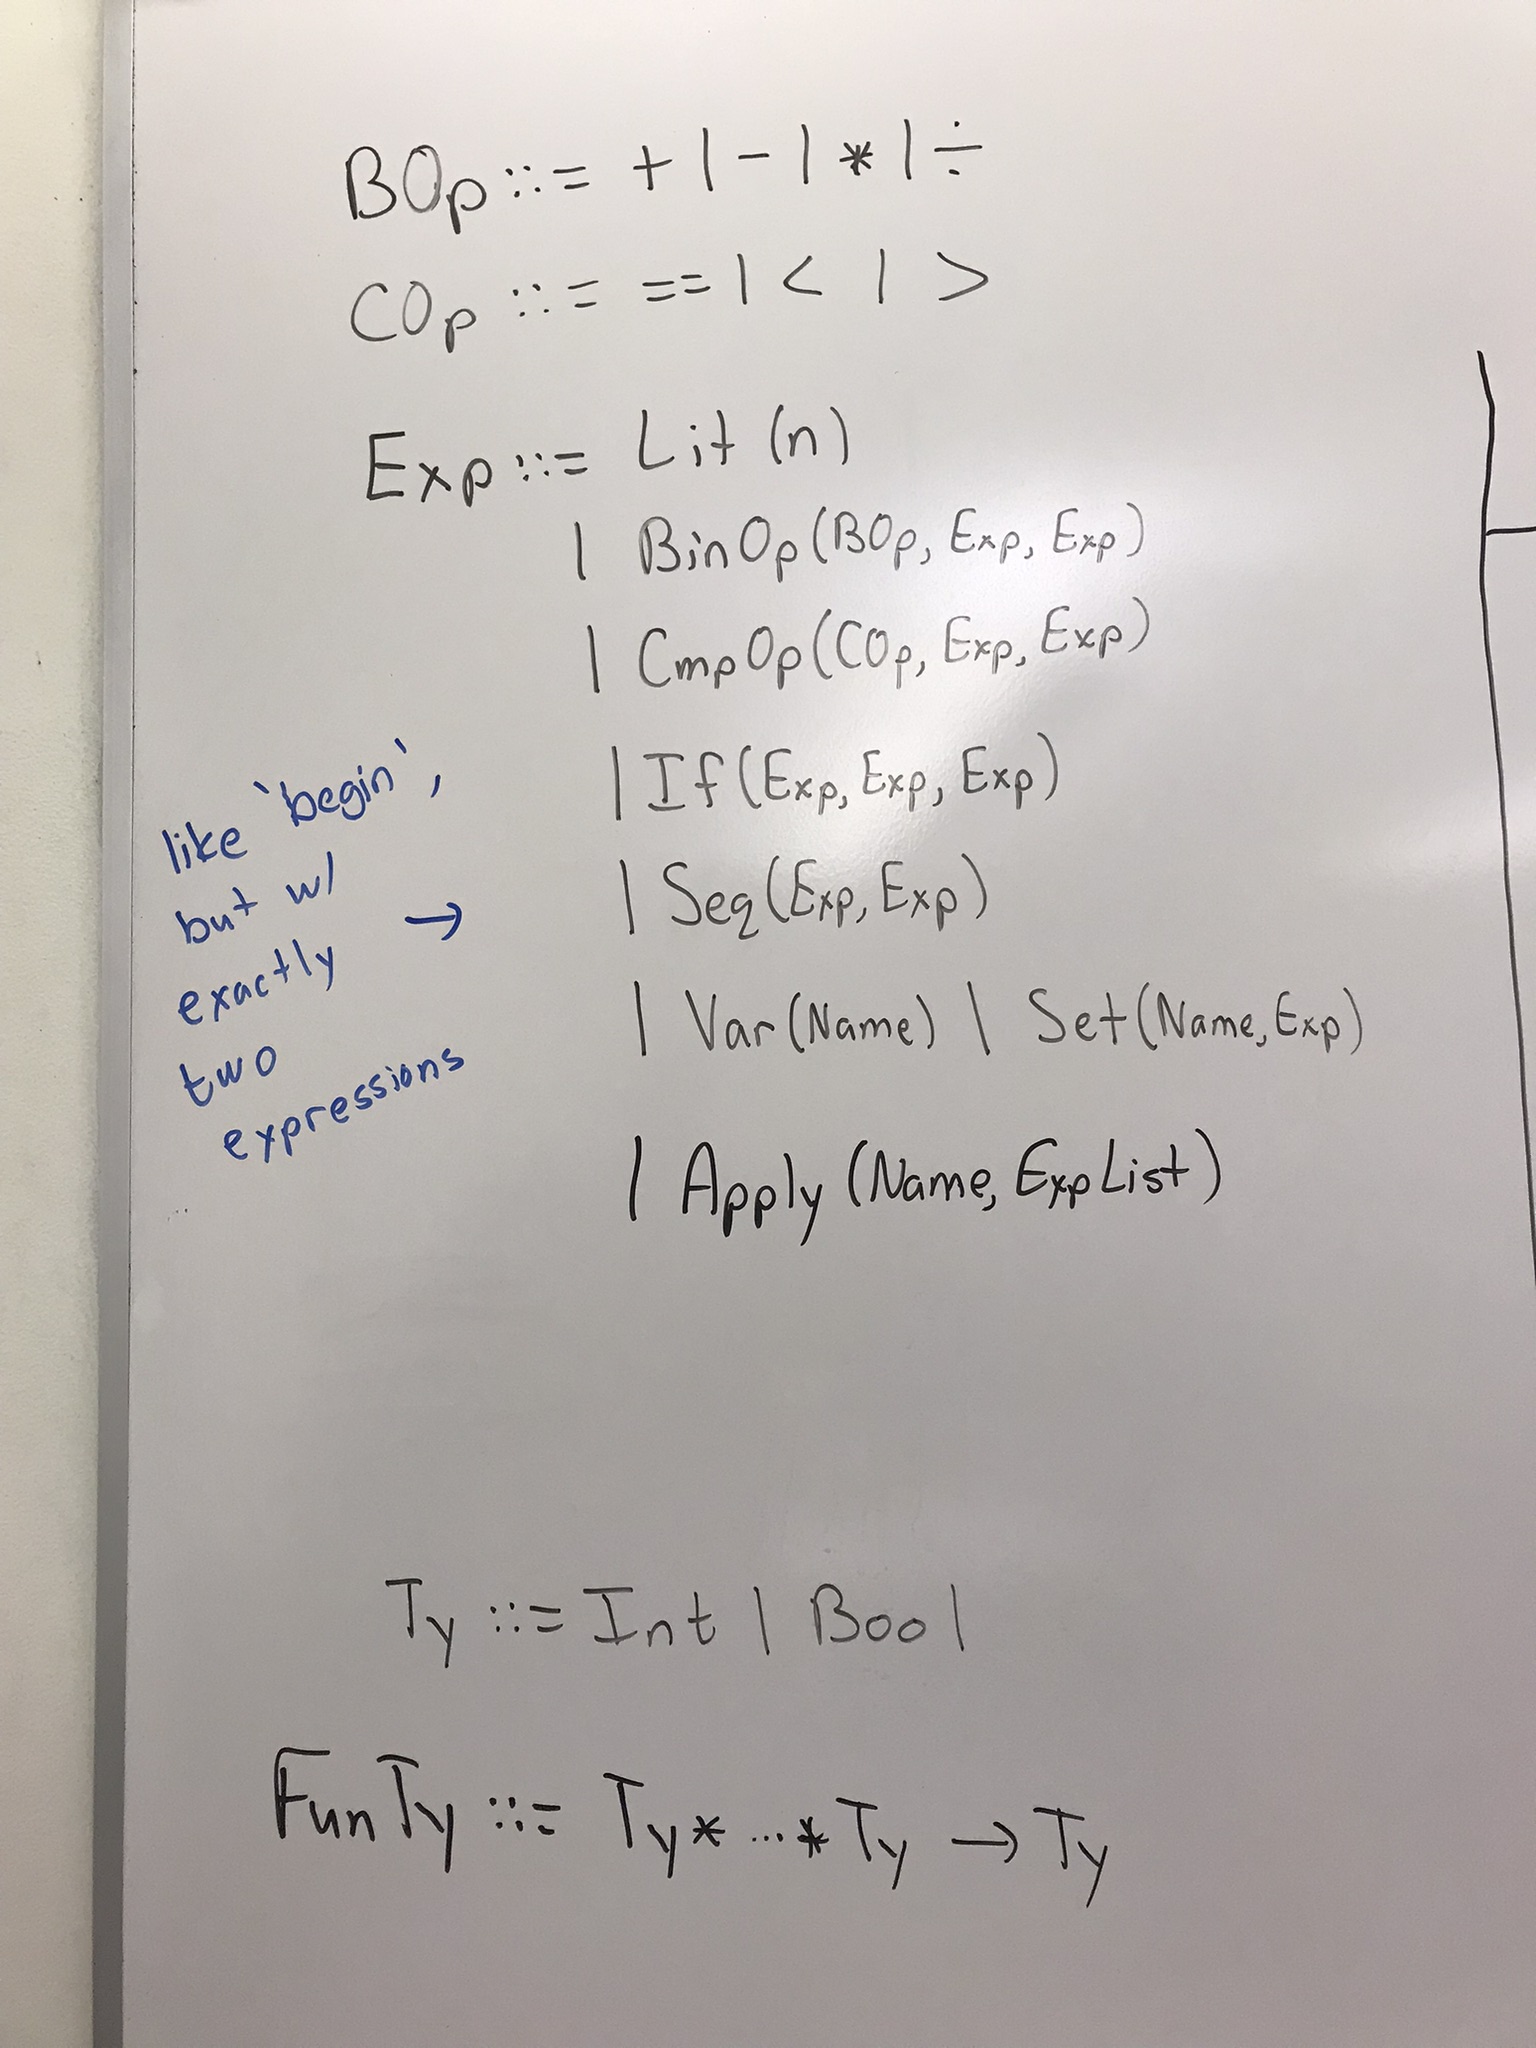 BOp ::= + | - | * | ÷
COp ::= == | < | >
Exp ::= Lit (n)
| BinOp (BOp, Exp, Exp)
| CmpOp (COp, Exp, Exp)
| If (Exp, Exp, Exp)
| Seq (Exp, Exp)
| Var (Name) | Set (Name, Exp)
| Apply (Name, ExpList)
like `begin`,
but w/
exactly →
two
expressions
Ty ::= Int | Bool
FunTy ::= Ty * ... * Ty → Ty